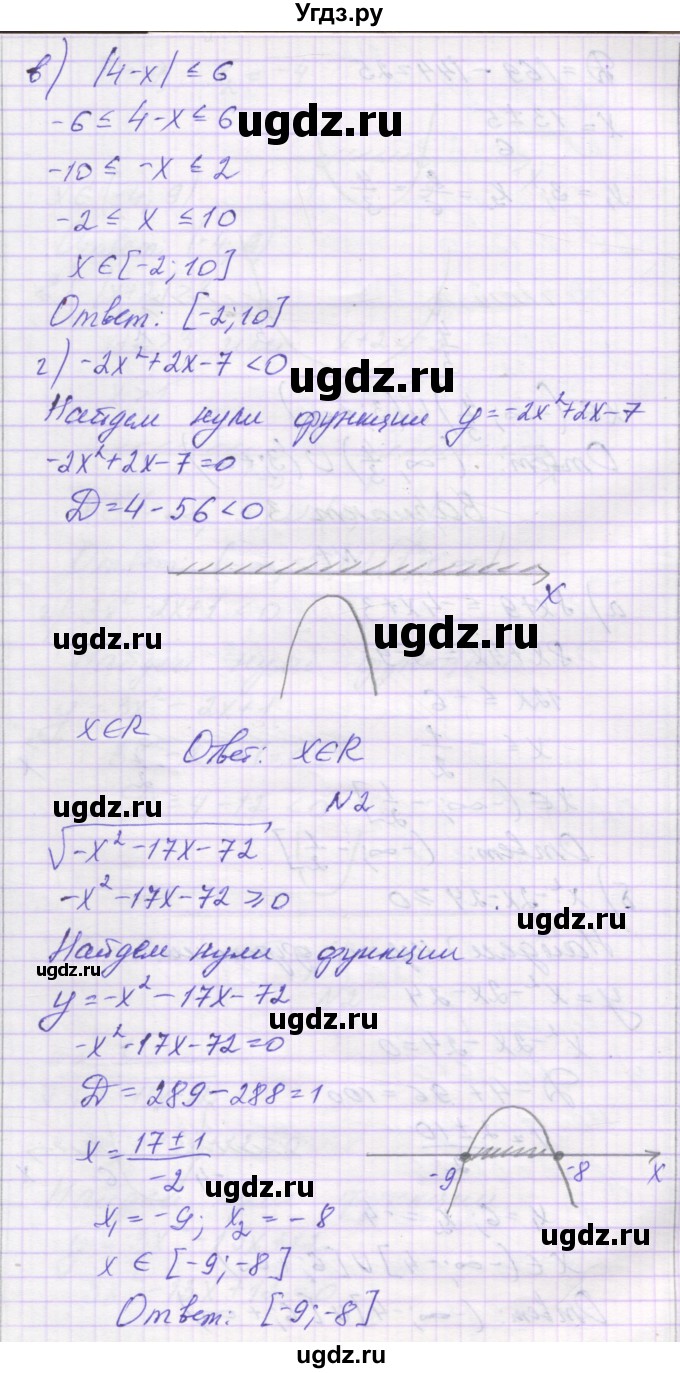 Угдз.ру
в) |4-x| ≤ 6
-6 ≤ 4-x ≤ 6
ugdz.ru
-10 ≤ -x ≤ 2
-2 ≤ x ≤ 10
x∈[-2; 10]
Ответ: [-2; 10]
г) -2x²+2x-7<0
ugdz.ru
Найдем нули функции y=-2x²+2x-7
-2x²+2x-7=0
D=4-56<0
x
ugdz.ru
ugdz.ru
x∈R
Ответ: x∈R
ugdz.ru
N2
√-x²-17x-72
-x²-17x-72≥0
ugdz.ru
Найдем нули функции
ugdz.ru
y=-x²-17x-72
ugdz.ru
-x²-17x-72=0
D=289-288=1
x=(17±1)/-2
-9 -8 x
ugdz.ru
x₁=-9; x₂=-8
ugdz.ru
x∈[-9;-8]
Ответ: [-9;-8]
ugdz.ru